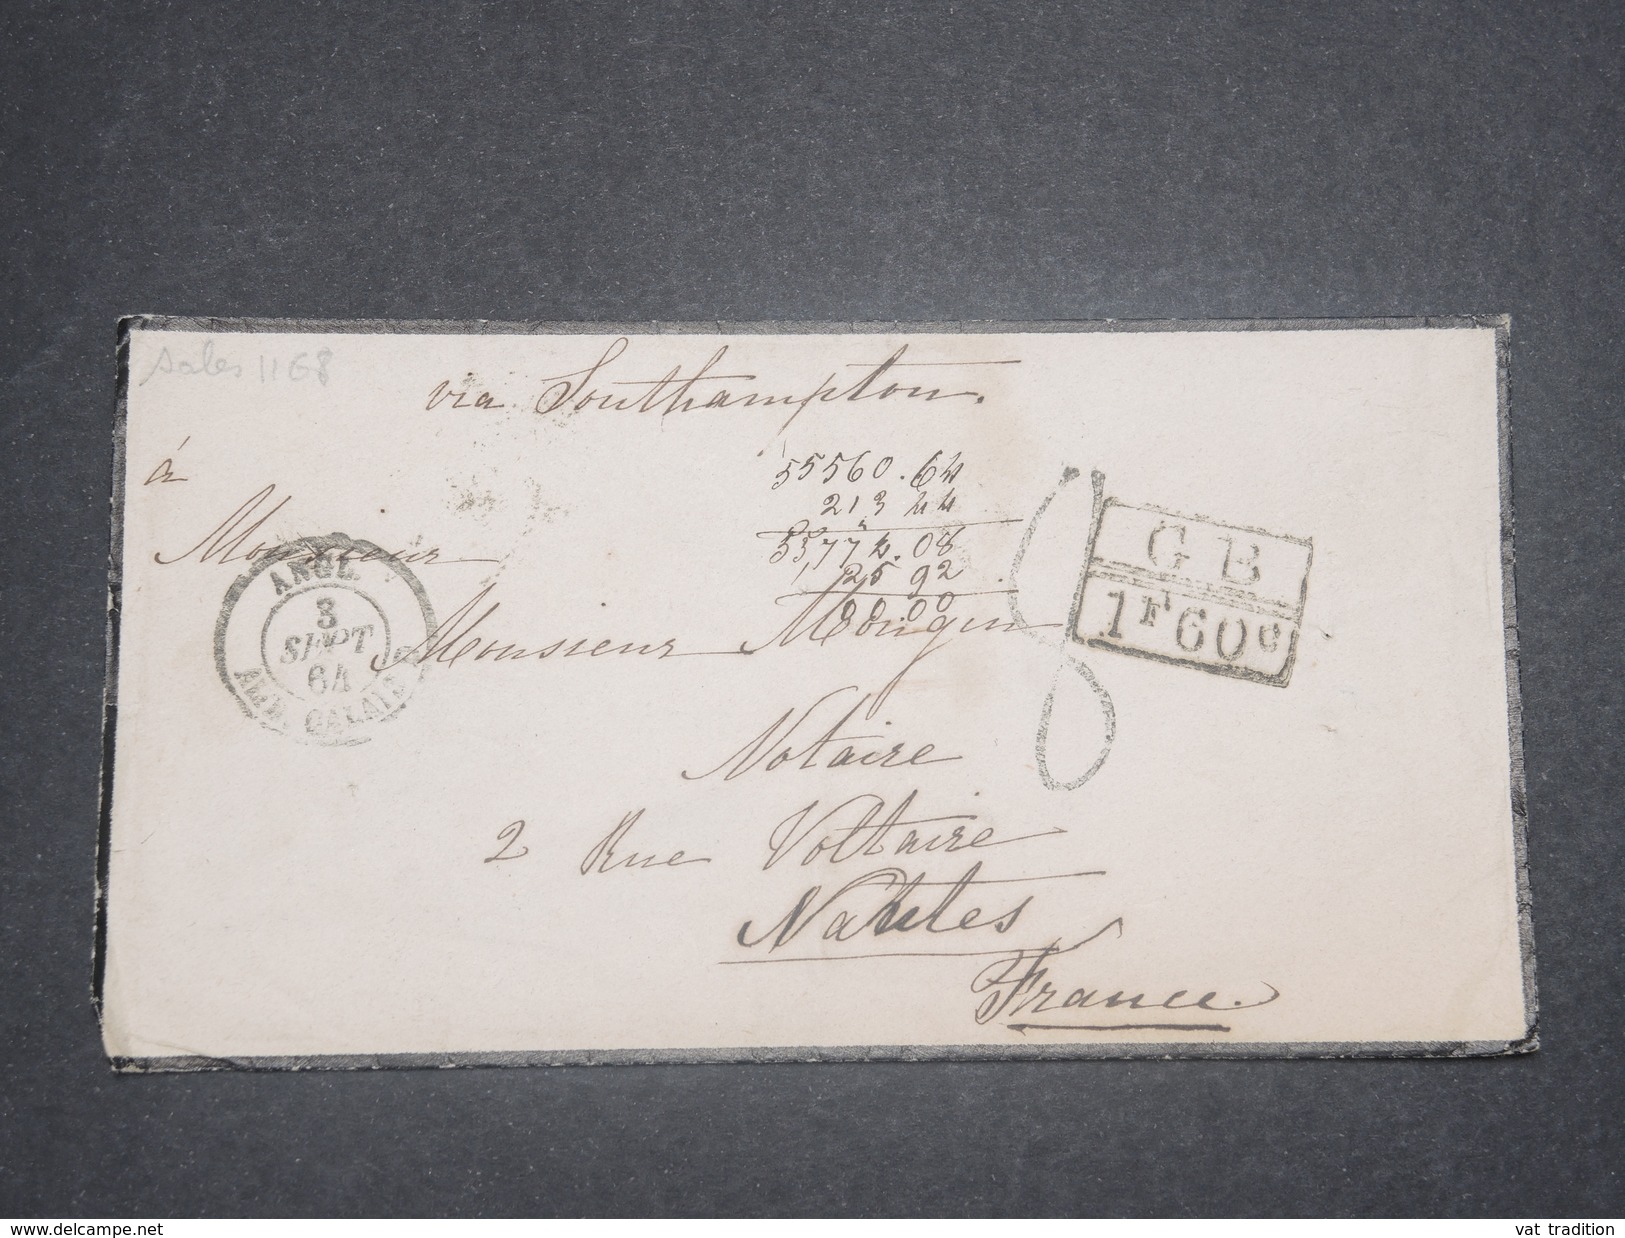 sales 1168
via Southampton.
à
55560.64
213 44
55774.08
25 92
00.00
Monsieur
Monsieur Mongin
Notaire
2 Rue Voltaire
Nantes
France.
ANGL.
3
SEPT
64
AMB. CALAIS
GB
1F60c
8
www.delcampe.net
vat_tradition